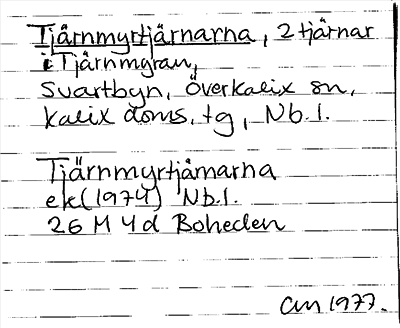 Tjärnmyrtjärnarna, 2 tjärnar
i Tjärnmyran,
Svartbyn, Överkalix sn,
Kalix doms. tg, Nb.l.
Tjärnmyrtjärnarna
ek (1974) Nb.l.
26 M 4 d Boheden
am 1977.